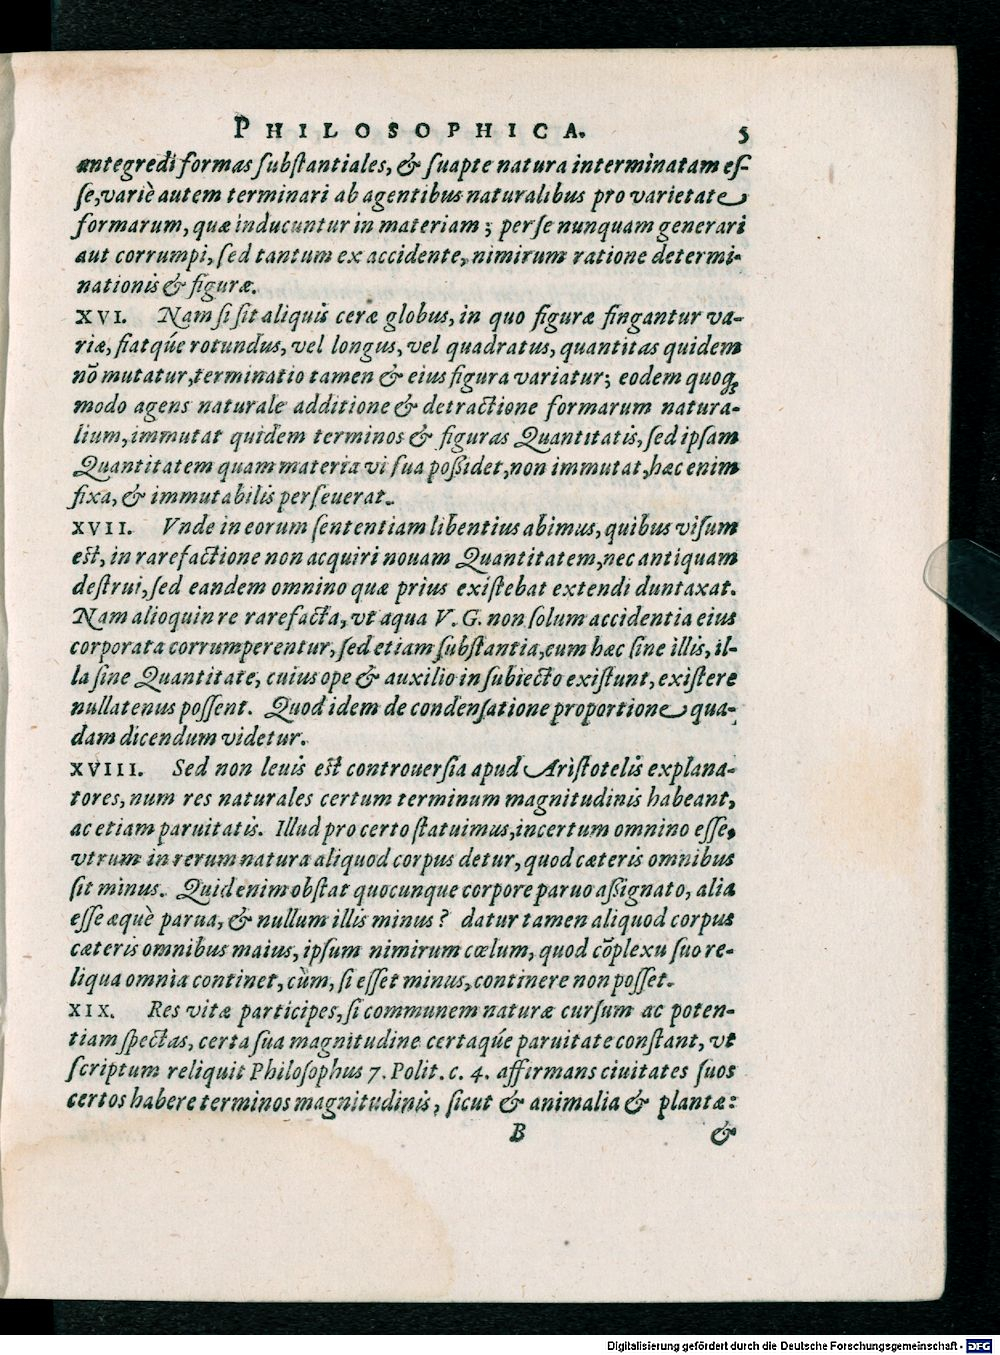 PHILOSOPHICA. 5
antegredi formas ſubſtantiales, & ſuapte natura interminatam eſ-
ſe, variè autem terminari ab agentibus naturalibus pro varietate
formarum, quæ inducuntur in materiam; per ſe nunquam generari
aut corrumpi, ſed tantum ex accidente, nimirum ratione determi-
nationis & figuræ.
XVI. Nam ſi ſit aliquis ceræ globus, in quo figuræ fingantur va-
riæ, fiatq́ue rotundus, vel longus, vel quadratus, quantitas quidem
nõ mutatur, terminatio tamen & eius figura variatur; eodem quoq;
modo agens naturale additione & detractione formarum natura-
lium, immutat quidem terminos & figuras Quantitatis, ſed ipſam
Quantitatem quam materia vi ſua poßidet, non immutat, hæc enim
fixa, & immutabilis perſeuerat.
XVII. Vnde in eorum ſententiam libentius abimus, quibus viſum
est, in rarefactione non acquiri nouam Quantitatem, nec antiquam
deſtrui, ſed eandem omnino quæ prius exiſtebat extendi duntaxat.
Nam alioquin re rarefacta, vt aqua V. G. non ſolum accidentia eius
corporata corrumperentur, ſed etiam ſubſtantia, cum hæc ſine illis, il-
la ſine Quantitate, cuius ope & auxilio in ſubiecto exiſtunt, exiſtere
nullatenus poſſent. Quod idem de condenſatione proportione qua-
dam dicendum videtur.
XVIII. Sed non leuis est controuerſia apud Ariſtotelis explana-
tores, num res naturales certum terminum magnitudinis habeant,
ac etiam paruitatis. Illud pro certo ſtatuimus, incertum omnino eſſe,
vtrum in rerum natura aliquod corpus detur, quod cæteris omnibus
ſit minus. Quid enim obſtat quocunque corpore paruo aßignato, alia
eſſe æquè parua, & nullum illis minus? datur tamen aliquod corpus
cæteris omnibus maius, ipſum nimirum cœlum, quod cõplexu ſuo re-
liqua omnia continet, cùm, ſi eſſet minus, continere non poſſet.
XIX. Res vitæ participes, ſi communem naturæ curſum ac poten-
tiam ſpectas, certa ſua magnitudine certaq́ue paruitate conſtant, vt
ſcriptum reliquit Philoſophus 7. Polit. c. 4. affirmans ciuitates ſuos
certos habere terminos magnitudinis, ſicut & animalia & plantæ:
B &
Digitalisierung gefördert durch die Deutsche Forschungsgemeinschaft - DFG